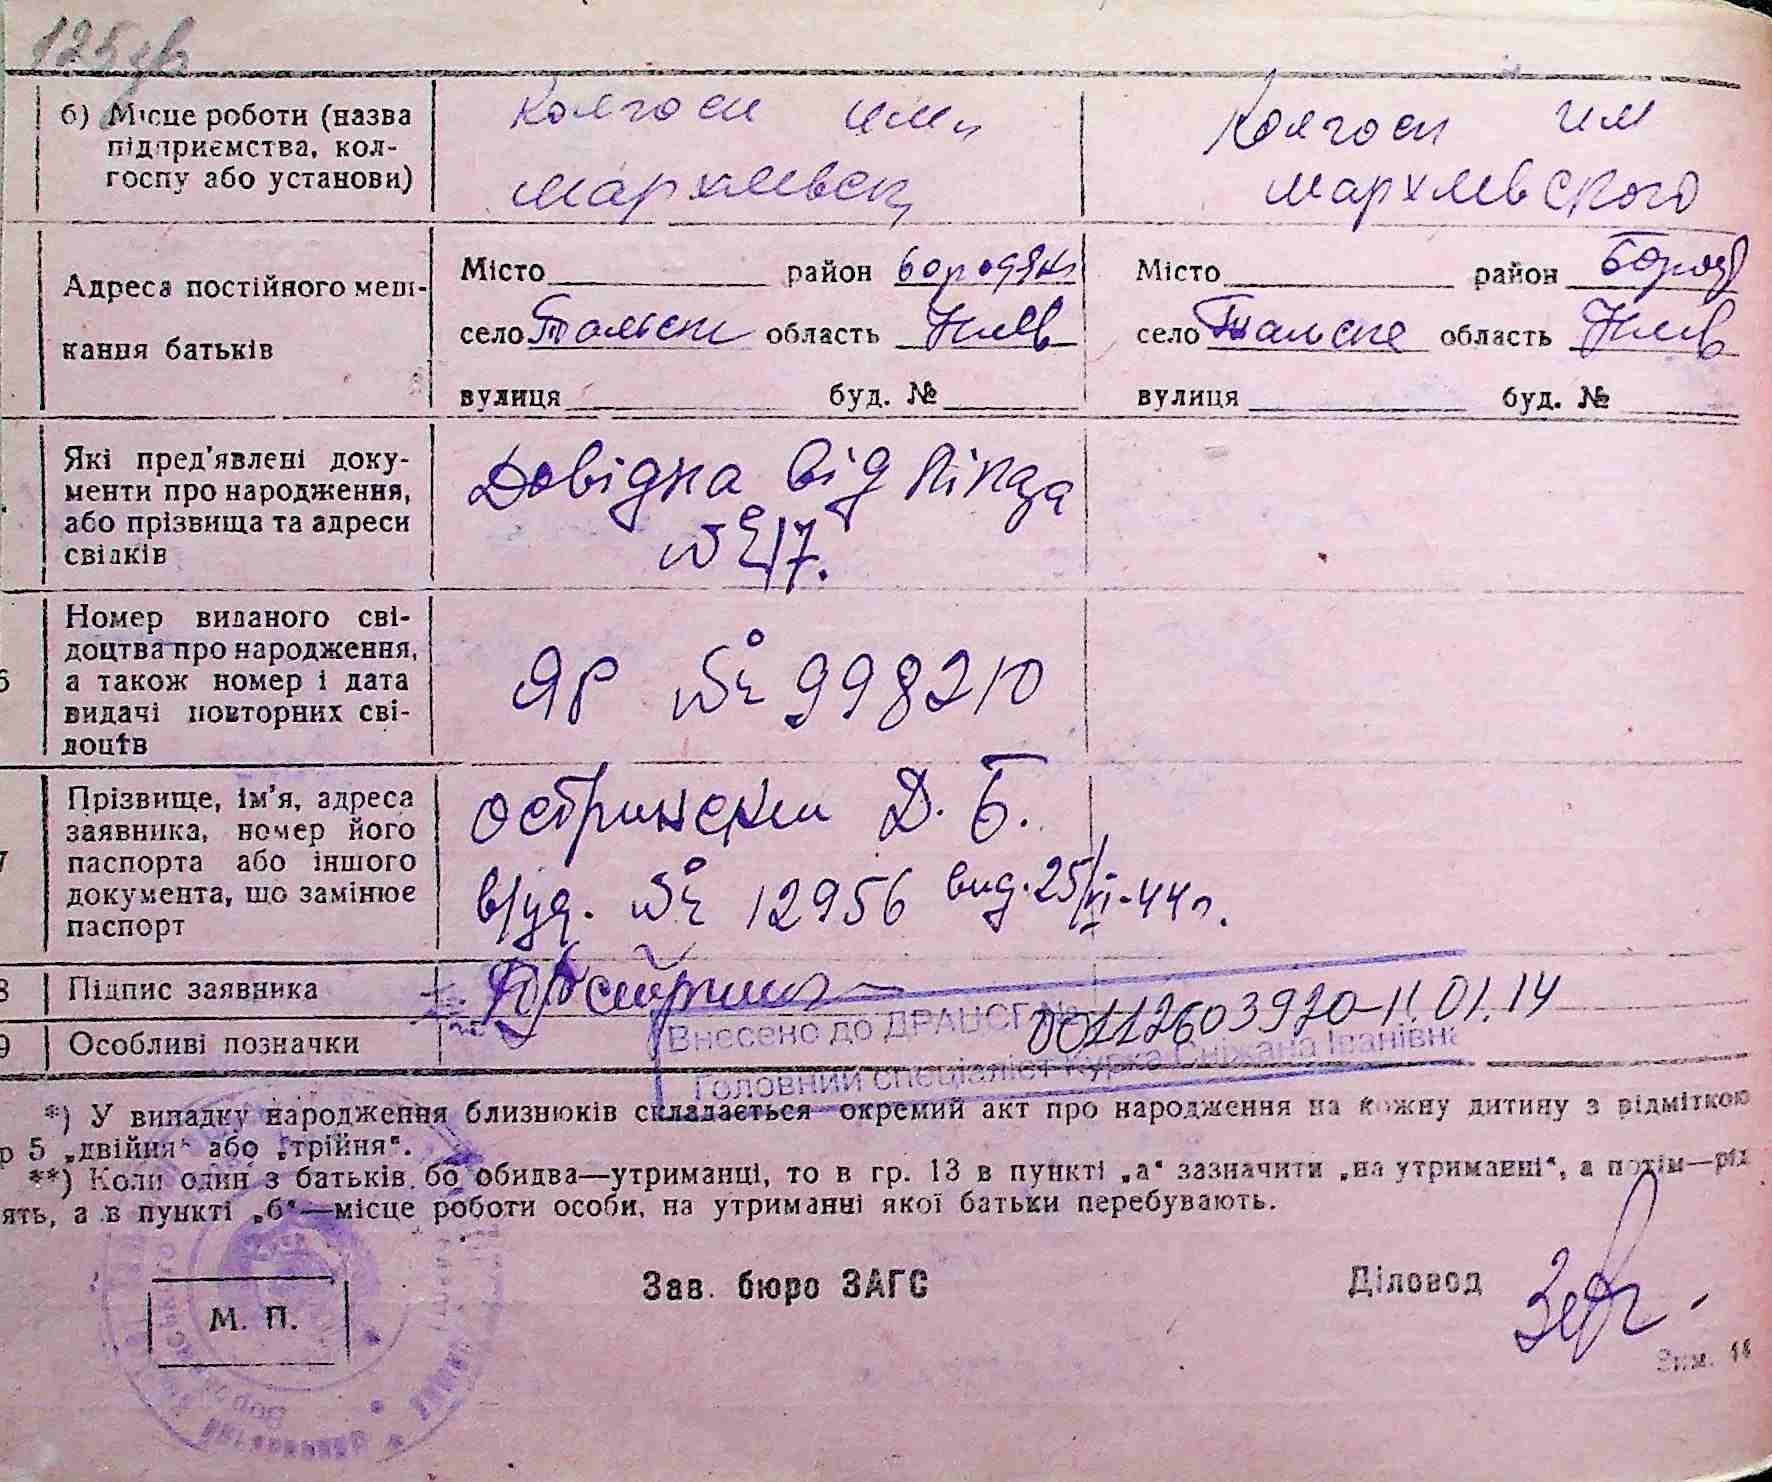 125
б) Місце роботи (назва підприємства, колгоспу або установи)
Колгосп им.
Мархлевск
Колгосп им
Мархлевского
Адреса постійного мешкання батьків
Місто район Бородян
село Тальськ область Київ
вулиця буд. №
Місто район Бород
село Тальське область Київ
вулиця буд. №
Які пред'явлені документи про народження, або прізвища та адреси свідків
Довідка від
№ 217.
6 Номер виданого свідоцтва про народження, а також номер і дата видачі повторних свідоцтв
ЯР № 998210
7 Прізвище, ім'я, адреса заявника, номер його паспорта або іншого документа, що замінює паспорт
Остринский Д. Б.
в/уд. № 12956 вид. 25/VI-44г.
8 Підпис заявника
9 Особливі позначки
Внесено до ДРАЦСГ № 00112603920-11.01.14
Головний спеціаліст Курка Сніжана Іванівна
*) У випадку народження близнюків складається окремий акт про народження на кожну дитину з відміткою
р 5 „двійня“ або „трійня“.
**) Коли один з батьків бо обидва—утриманці, то в гр. 13 в пункті „а“ зазначити „на утриманні“, а потім—рід
ять, а в пункті „б“—місце роботи особи, на утриманні якої батьки перебувають.
Зав. бюро ЗАГС
Діловод
М. П.